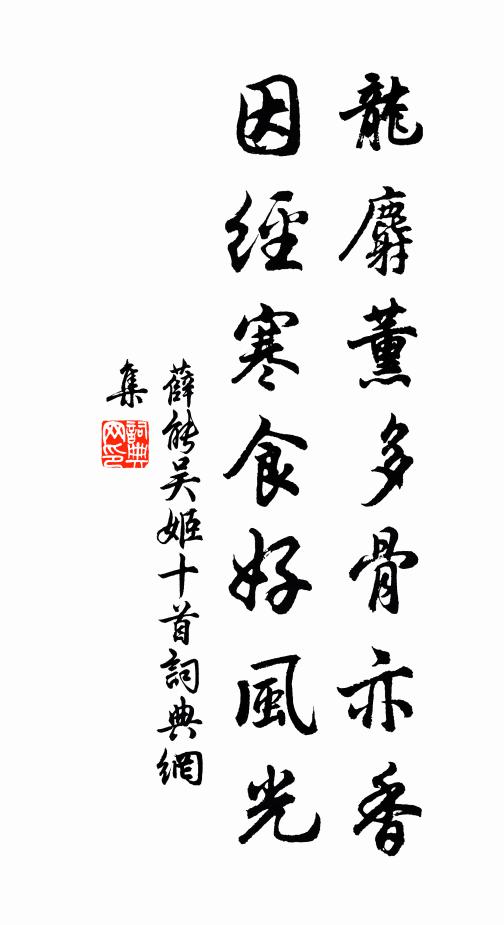 龍麝薰多骨亦香
因經寒食好風光
薛能吳姬十首詞典網
集
詞典網印